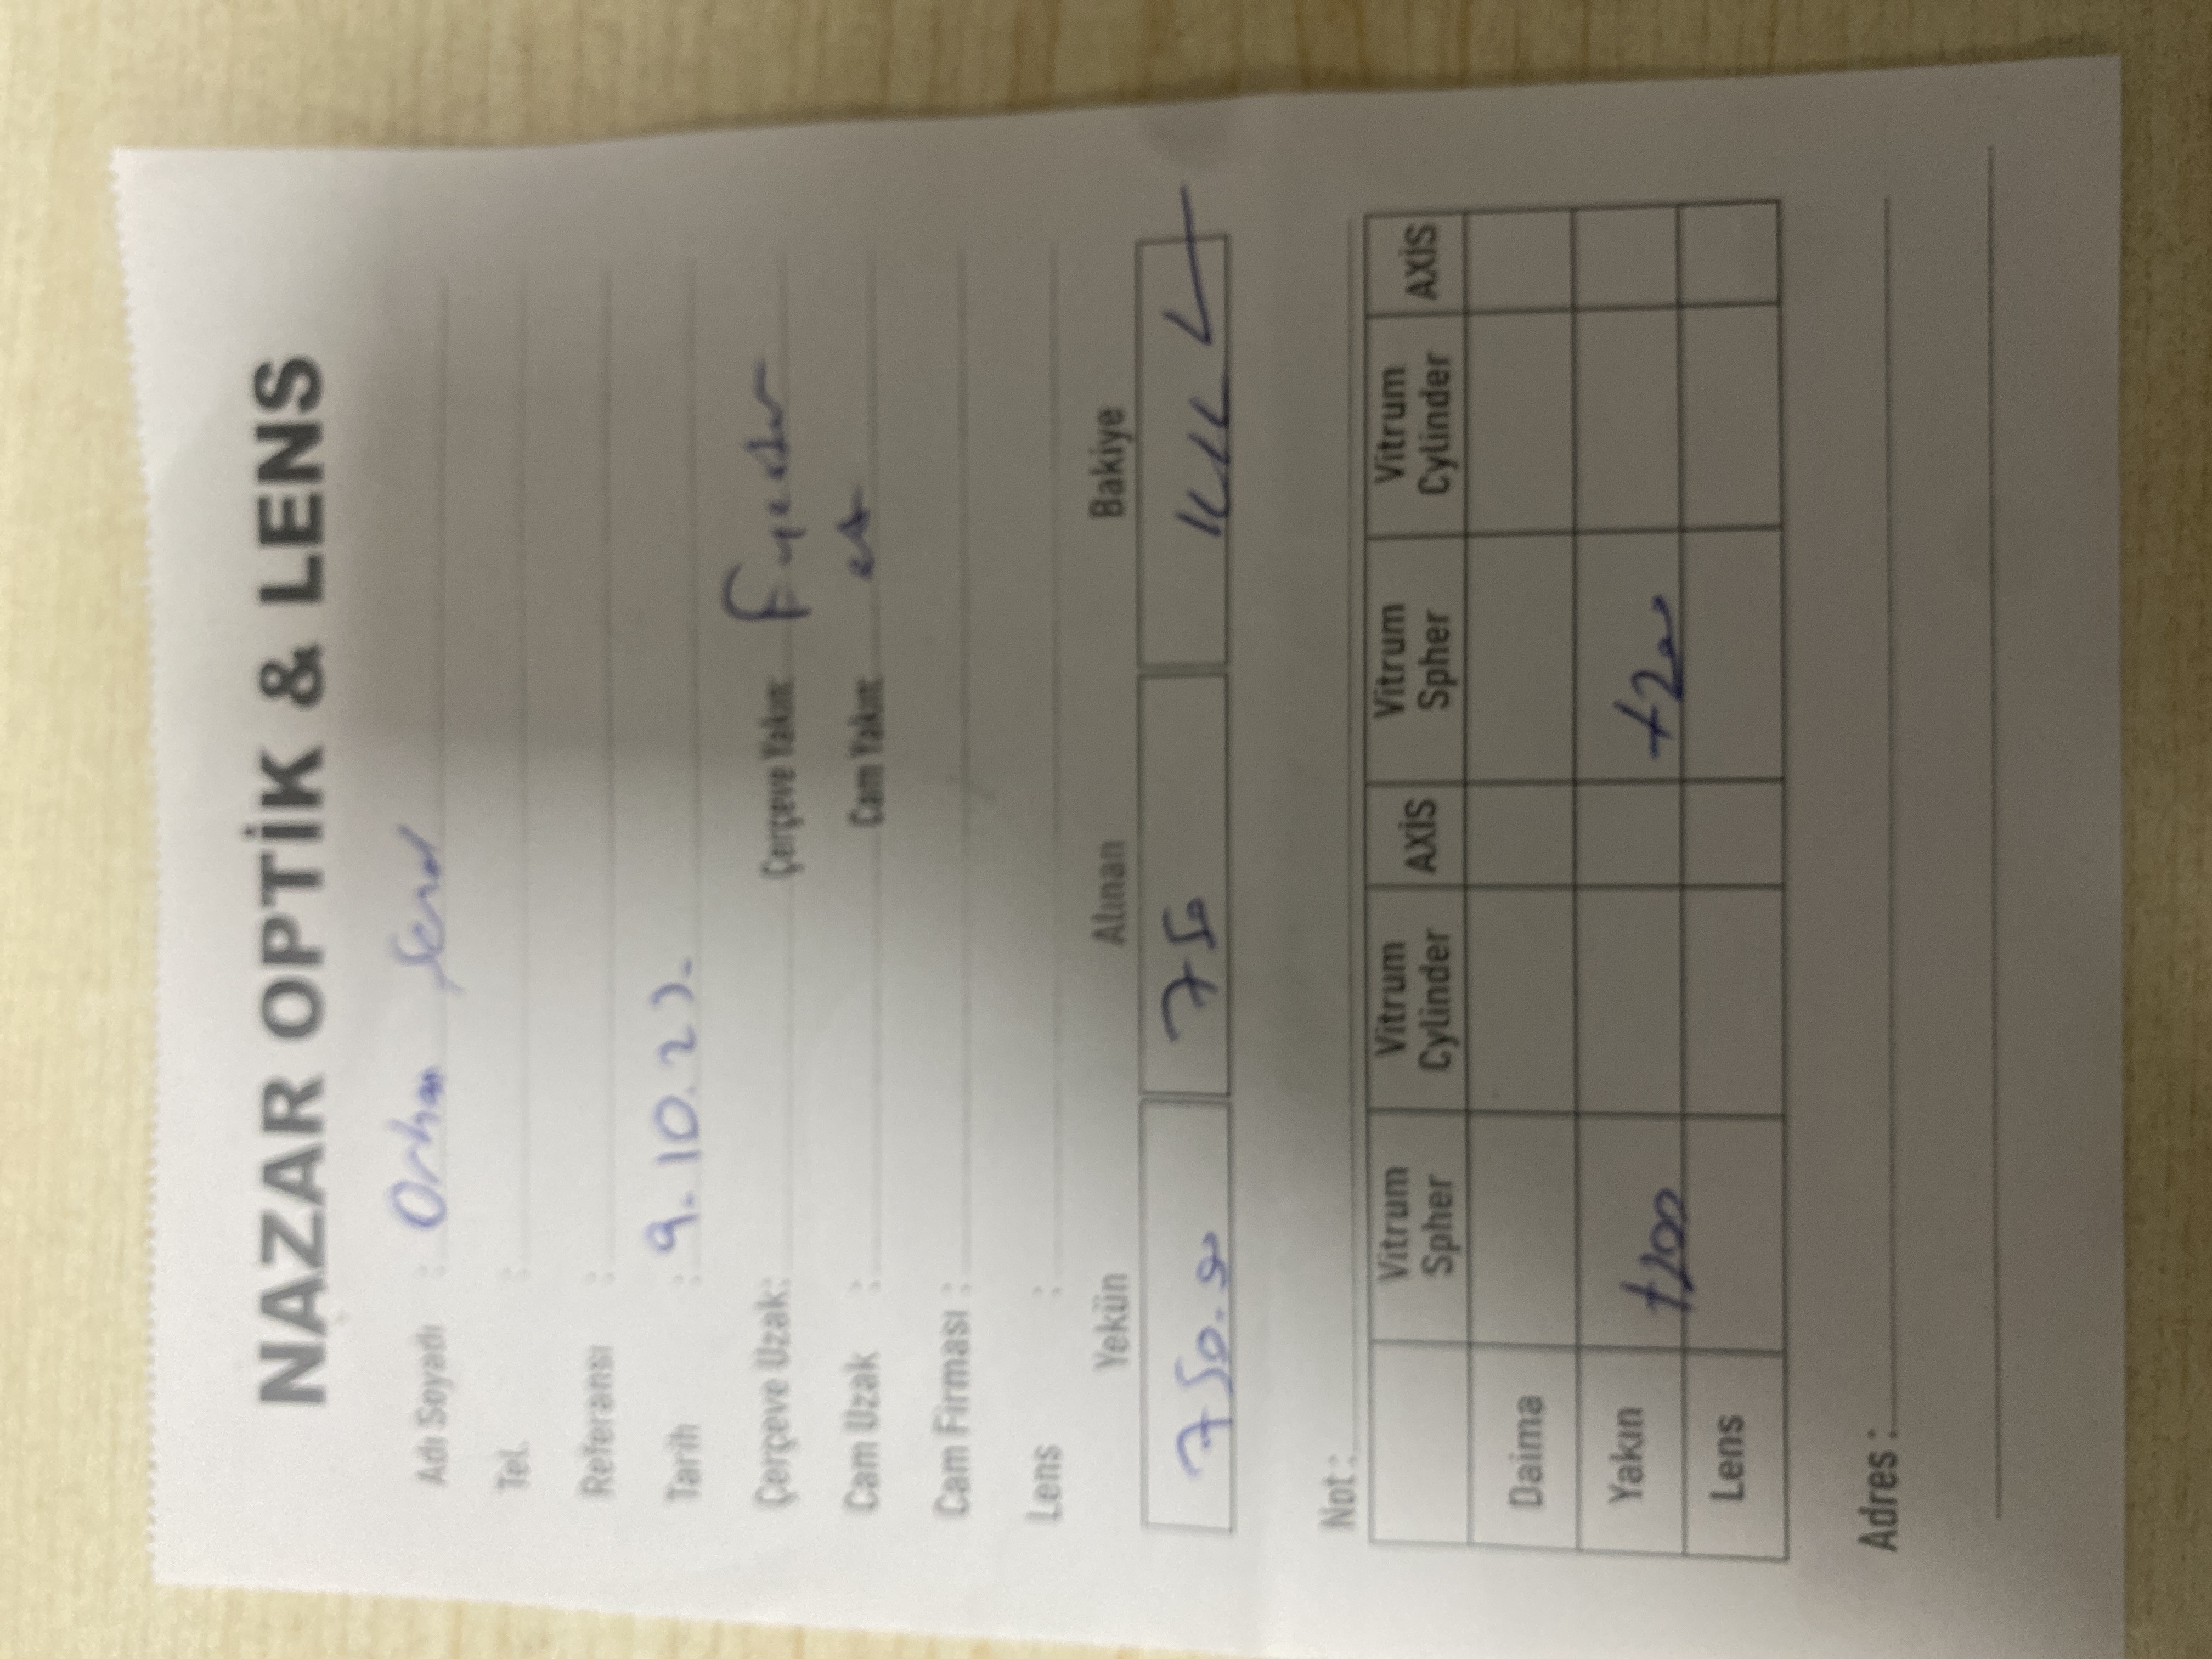 NAZAR OPTİK & LENS
Adı Soyadı : Orhan
Tel. :
Referansı :
Tarih : 9.10.23.
Çerçeve Uzak: Çerçeve Yakın:
Cam Uzak : Cam Yakın:
Cam Firması :
Lens :
Yekün Alınan Bakiye
750.00 750
Not :
Vitrum Spher Vitrum Cylinder AXİS Vitrum Spher Vitrum Cylinder AXİS
Daima
Yakın +200 +200
Lens
Adres :